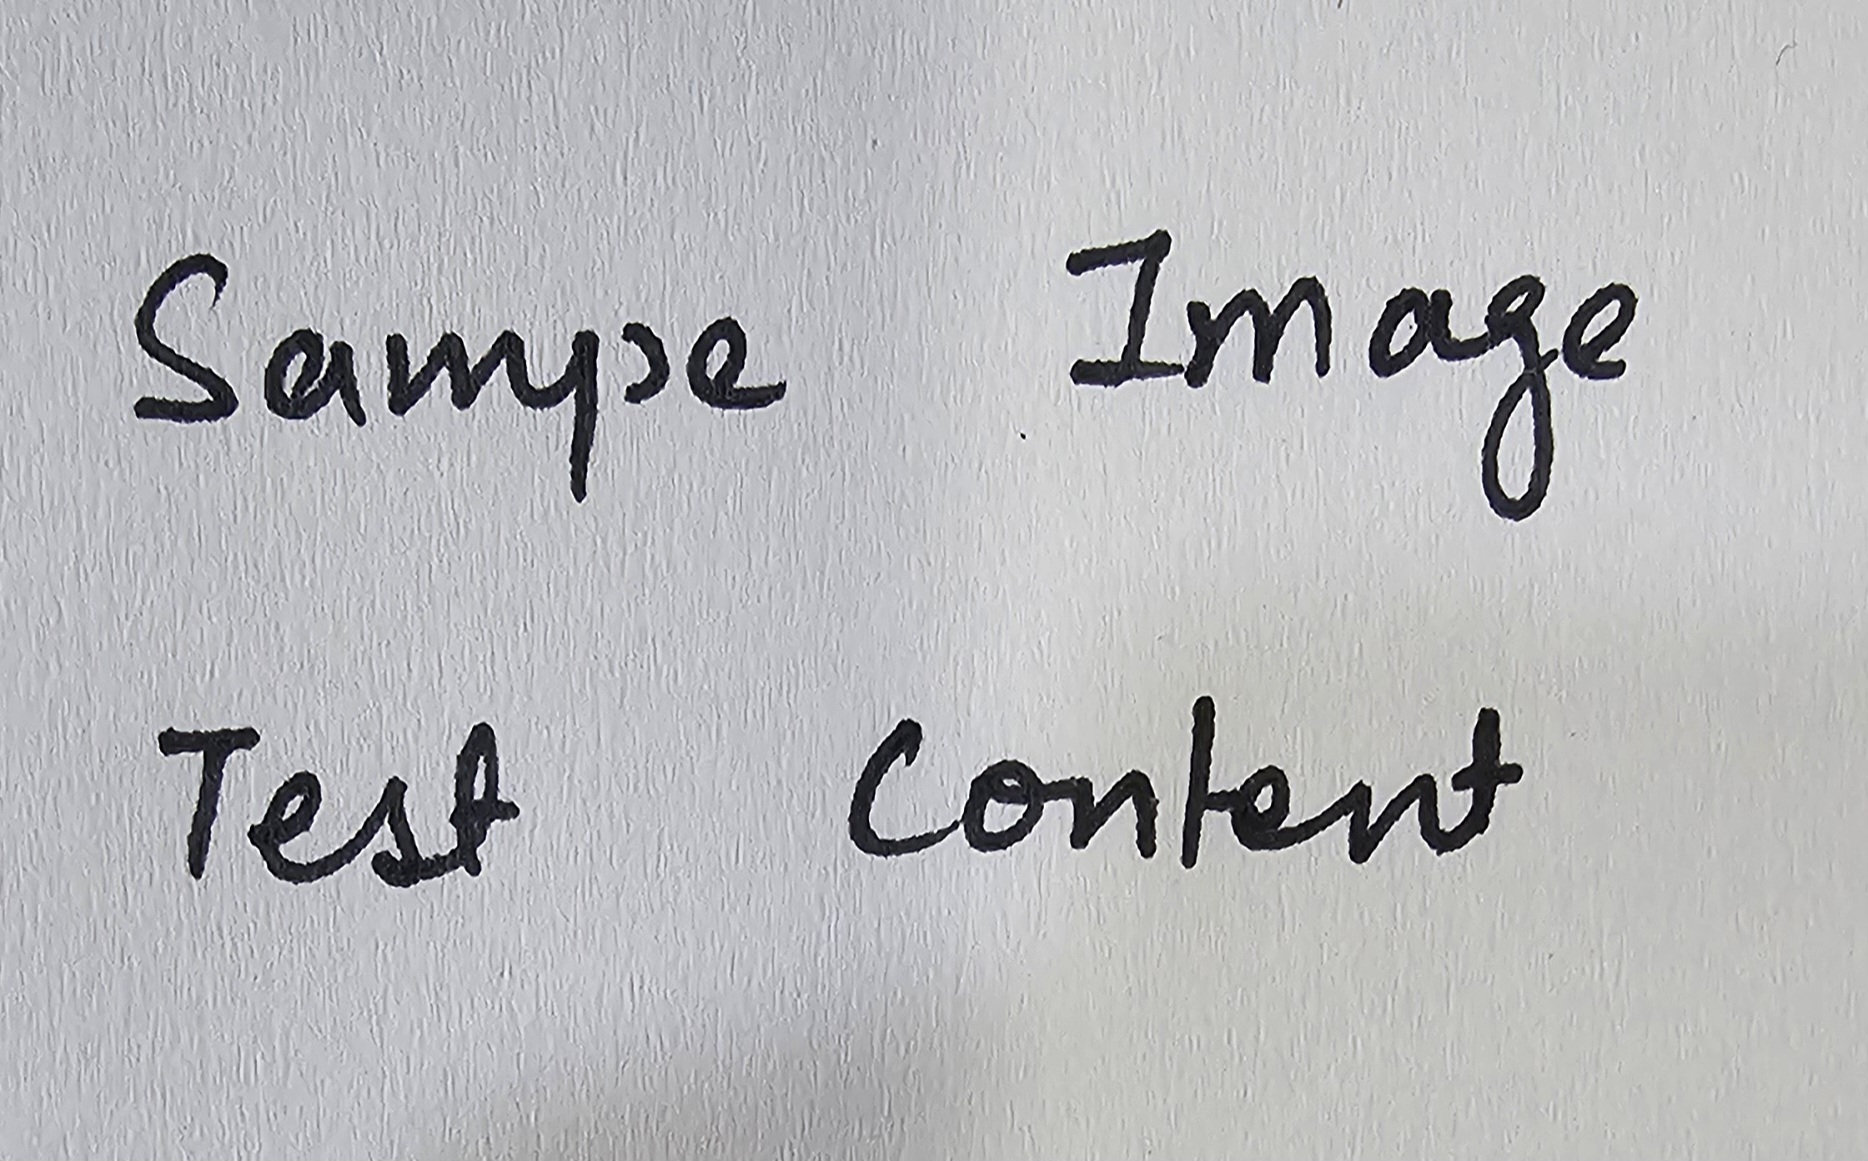 Sampe Image
Test Content